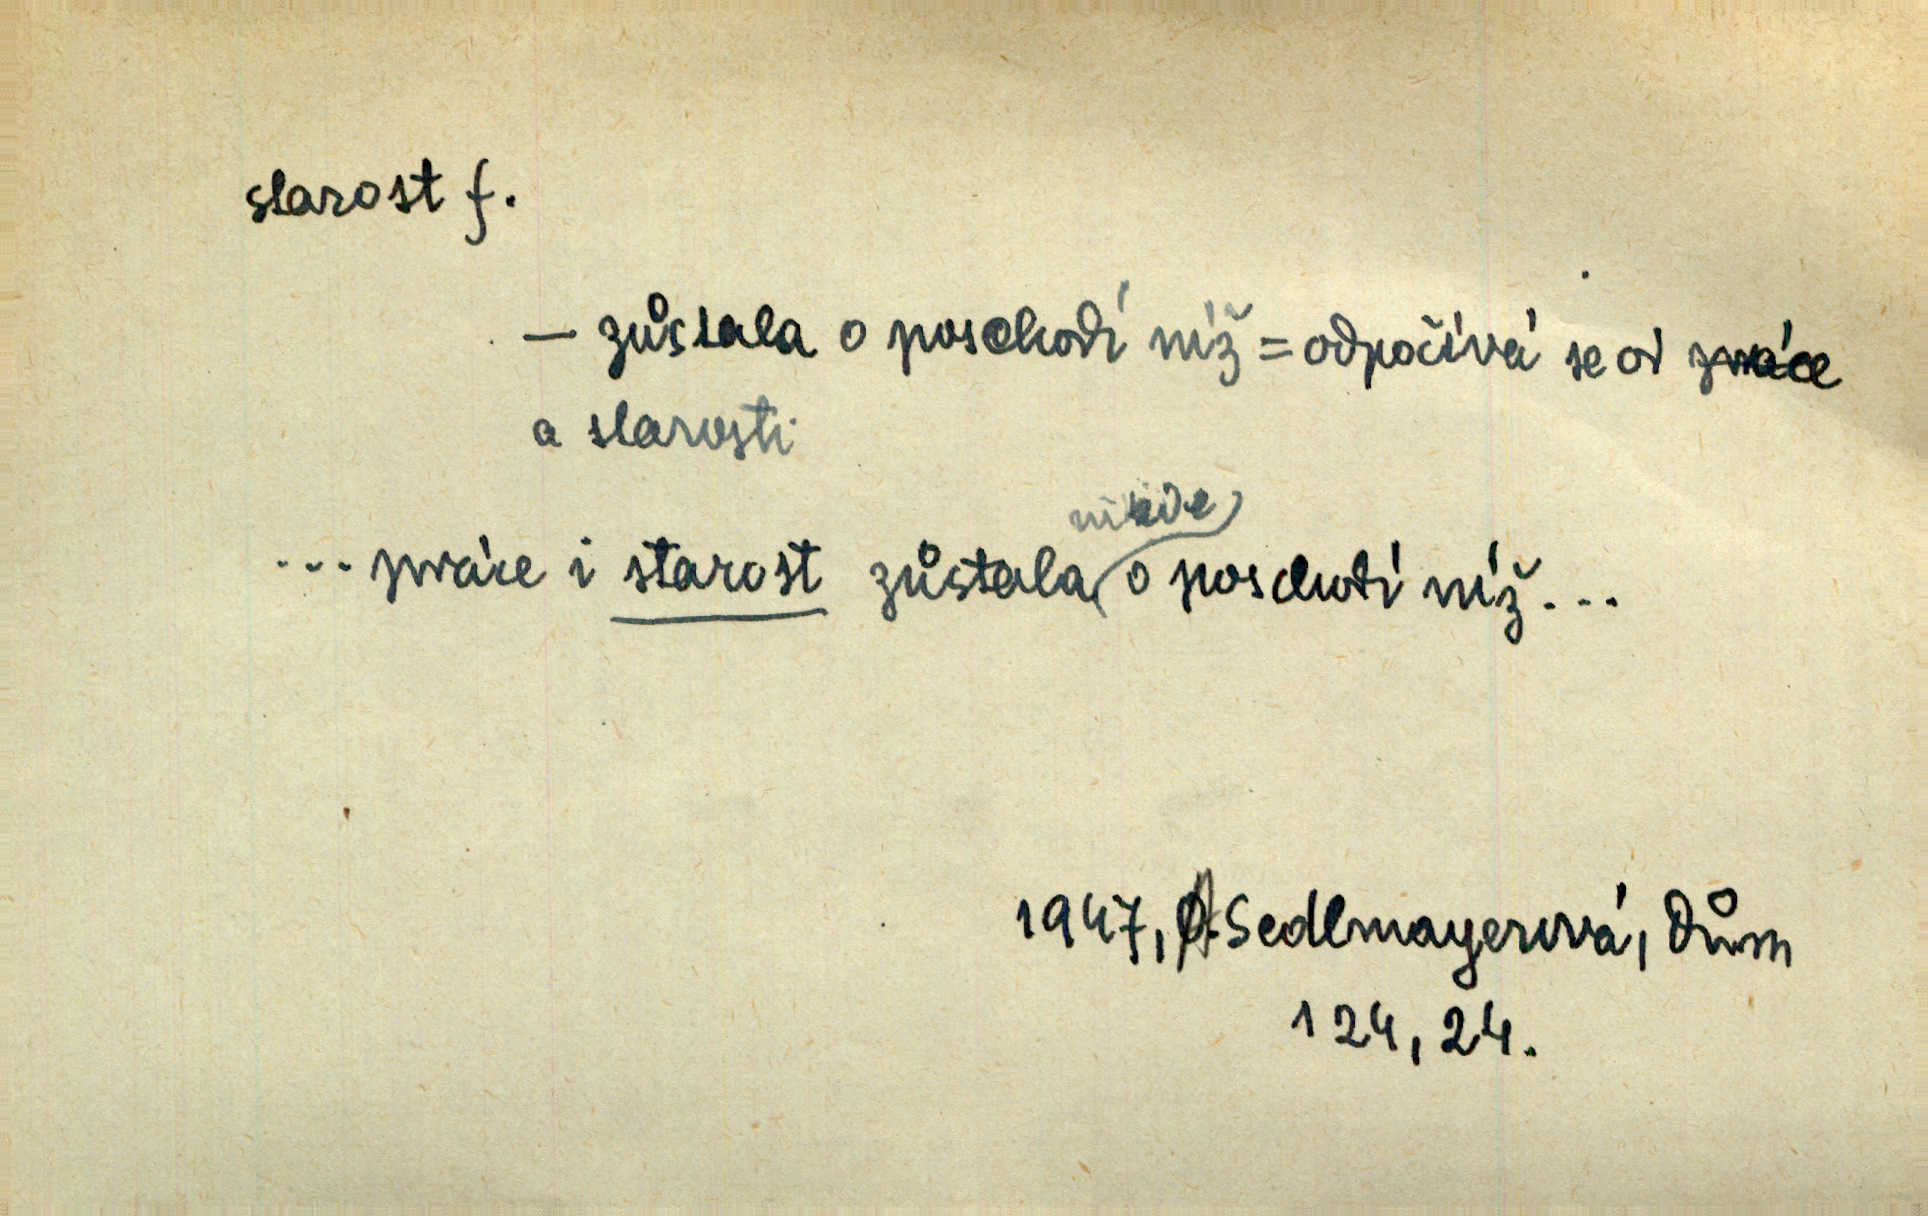 starost f.
— zůstala o poschodí níž = odpočívá se od práce
a starosti
... práce i starost zůstala o poschodí níž...
1947, A. Sedlmayerová, Dům
124, 24.